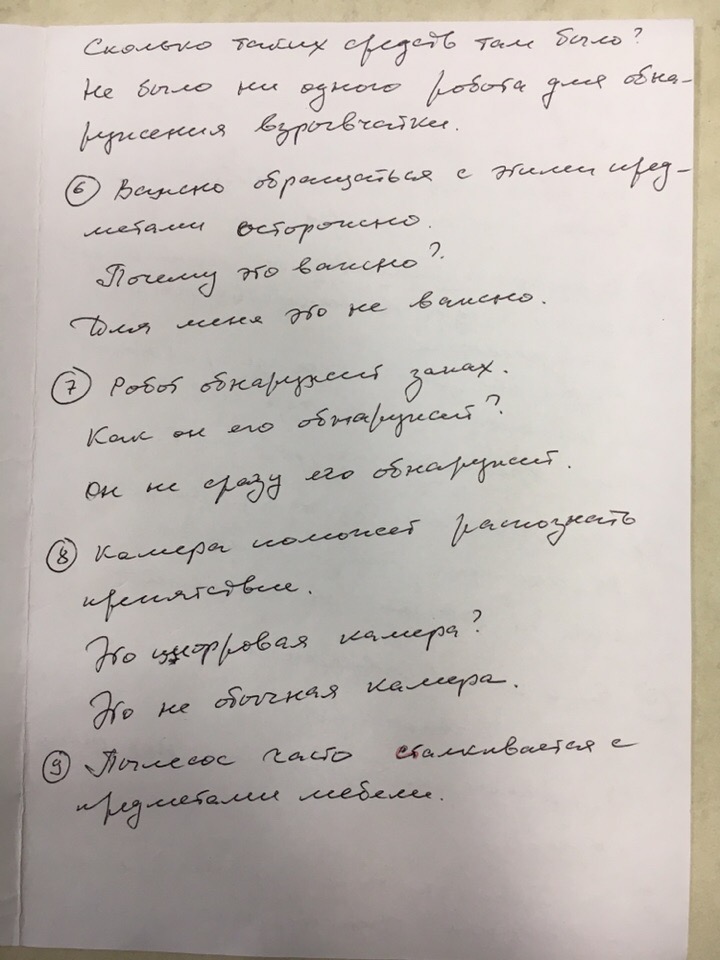 Сколько таких средств там было?
Не было ни одного робота для обна-
ружения взрывчатки.
6 Важно обращаться с этими пред-
метами осторожно.
Почему это важно?
Для меня это не важно.
7 Робот обнаружит запах.
Как он его обнаружит?
Он не сразу его обнаружит.
8 Камера поможет распознать
препятствие.
Это цифровая камера?
Это не обычная камера.
9 Пылесос часто сталкивается с
предметами мебели.